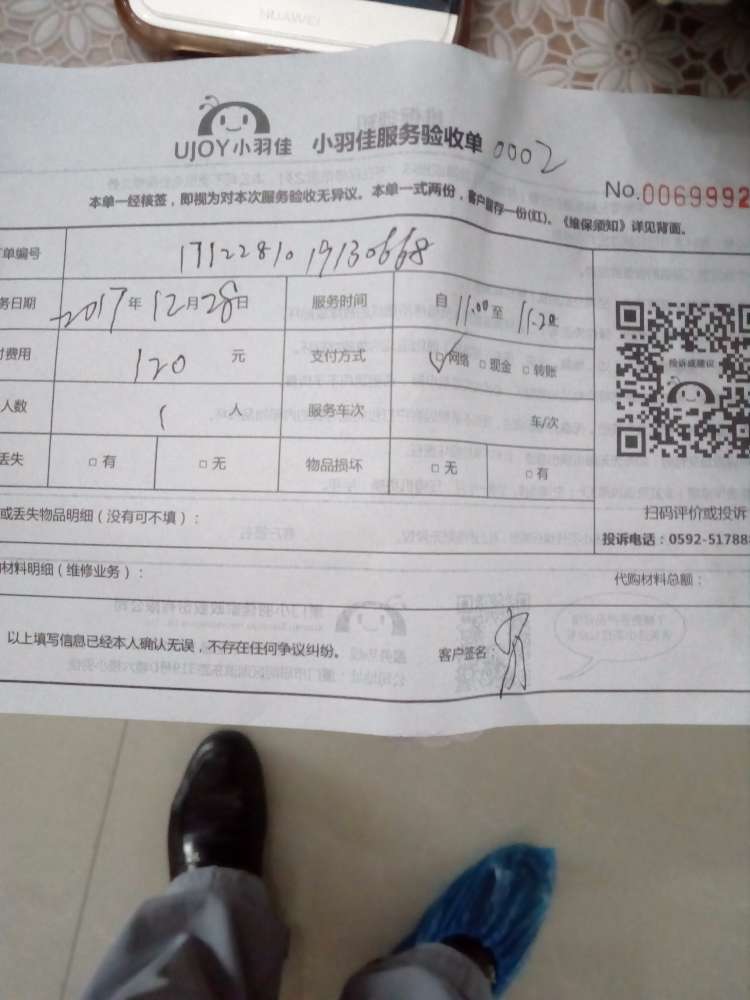 HUAWEI
UJOY小羽佳 小羽佳服务验收单 0002
No.0069992
本单一经核签，即视为对本次服务验收无异议。本单一式两份，客户留存一份(红)。《维保须知》详见背面。
单编号 1712281019130668
务日期 2017年12月28日 服务时间 自11:00至11:20
费用 120元 支付方式 ☑网络 □现金 □转账
人数 1人 服务车次 车/次
丢失 □有 □无 物品损坏 □无 □有
投诉或建议
扫码评价或投诉
投诉电话：0592-51788
或丢失物品明细（没有可不填）：
材料明细（维修业务）： 代购材料总额：
以上填写信息已经本人确认无误，不存在任何争议纠纷。 客户签名：